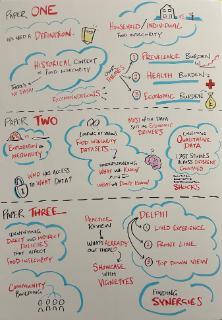 PAPER ONE
WE NEED A DEFINITION.
HOUSEHOLD/INDIVIDUAL
FOOD INSECURITY
HISTORICAL CONTEXT
OF FOOD INSECURITY
THERE'S
NO DATA!
RECOMMENDATIONS
1 PREVALENCE BURDEN
2 HEALTH BURDEN
3 ECONOMIC BURDEN
PAPER TWO
EXPLORATION
INEQUALITY
WHO HAS ACCESS
TO WHAT DATA?
FOOD INSECURITY
DATASETS
UNDERSTANDING
WHAT WE KNOW
AND
WHAT WE DON'T KNOW!
MOST OF THE DATA
ECONOMIC
DRIVERS
QUALITATIVE
DATA
SHOCKS
PAPER THREE
IDENTIFYING
DIRECT AND INDIRECT
POLICIES
THAT IMPACT
FOOD INSECURITY
COMMUNITY
BUILDING
PRACTICE
REVIEW
WHAT'S ALREADY
OUT THERE?
SHOWCASE
WITH
VIGNETTES
DELPHI
1 LIVED EXPERIENCE
2 FRONT LINE
3 TOP DOWN VIEW
FINDING
SYNERGIES